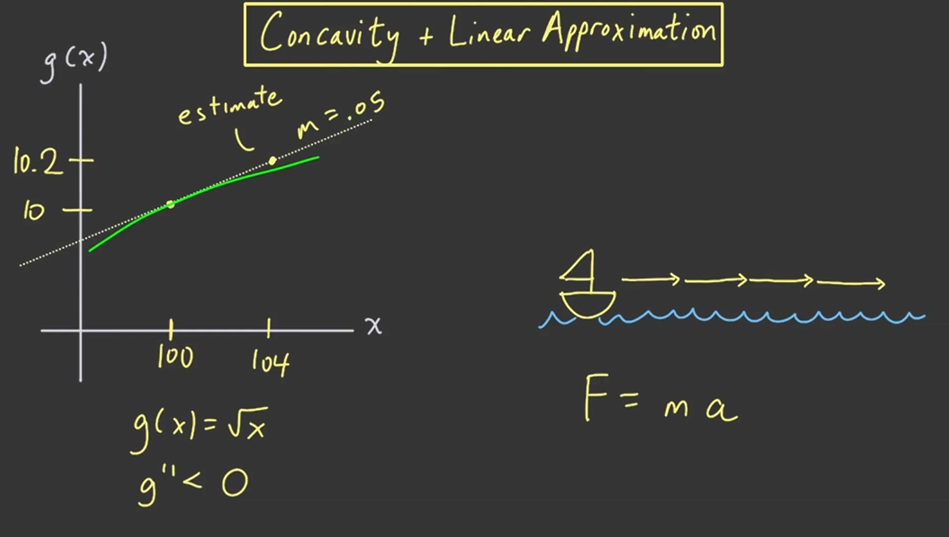 Concavity + Linear Approximation
g(x)
estimate
m = .05
10.2
10
x
100
104
g(x) = √x
g'' < 0
F = m a